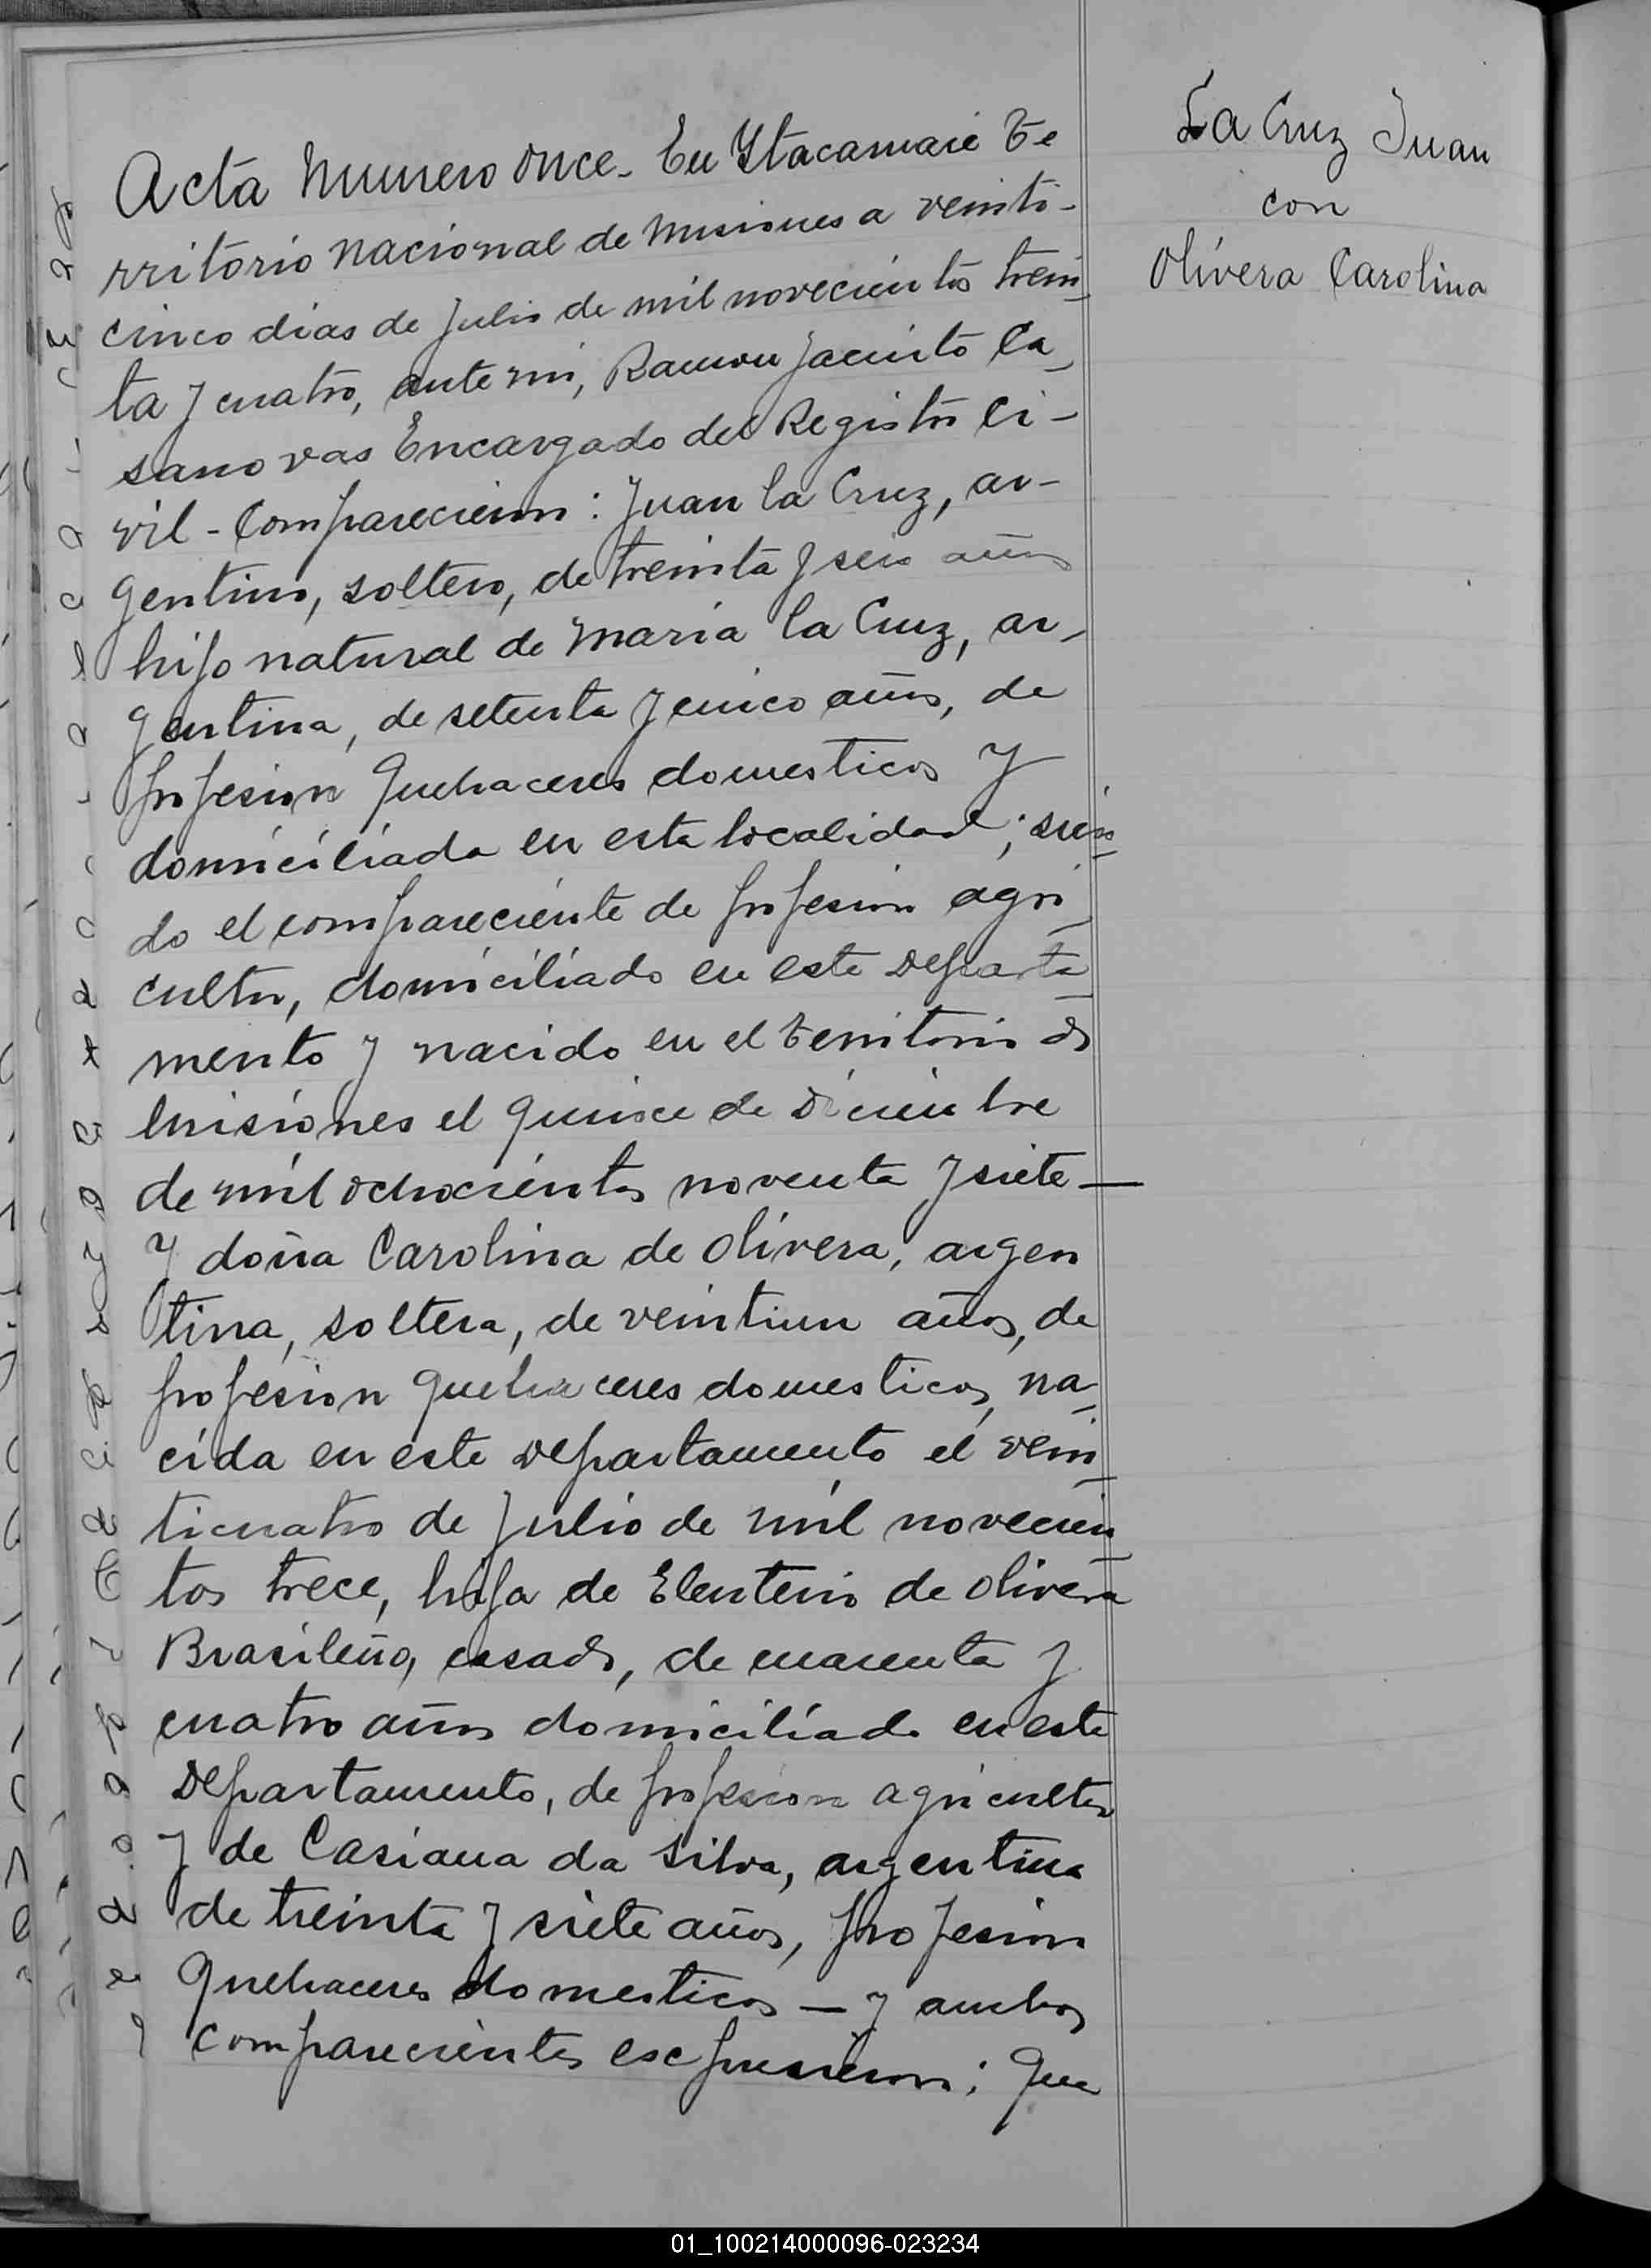 La Cruz Juan
con
Olivera Carolina
Acta Numero once. En Ytacaruaré Te
rritorio Nacional de Misiones a veinti-
cinco dias de Julio de mil novecientos trein
ta y cuatro, ante mi, Ramon Jacinto Ca
sanovas Encargado del Registro Ci-
vil - Comparecieron: Juan la Cruz, ar-
gentino, soltero, de treinta y seis años
hijo natural de Maria la Cruz, ar-
gentina, de setenta y cinco años, de
profesion quehaceres domesticos y
domiciliada en esta localidad; sien
do el compareciente de profesion agri
cultor, domiciliado en este Departa
mento y nacido en el Territorio de
Misiones el quince de Diciembre
de mil ochocientos noventa y siete —
y doña Carolina de Olivera, argen
tina, soltera, de veintiun años, de
profesion quehaceres domesticos, na
cida en este Departamento el vein
ticuatro de Julio de mil novecien
tos trece, hija de Eleuterio de Olivera
Brasileño, casado, de cuarenta y
cuatro años domiciliado en este
Departamento, de profesion agricultor
y de Casiana da Silva, argentina
de treinta y siete años, profesion
Quehaceres domesticos — y ambos
comparecientes escpresaron: Que
01_100214000096-023234